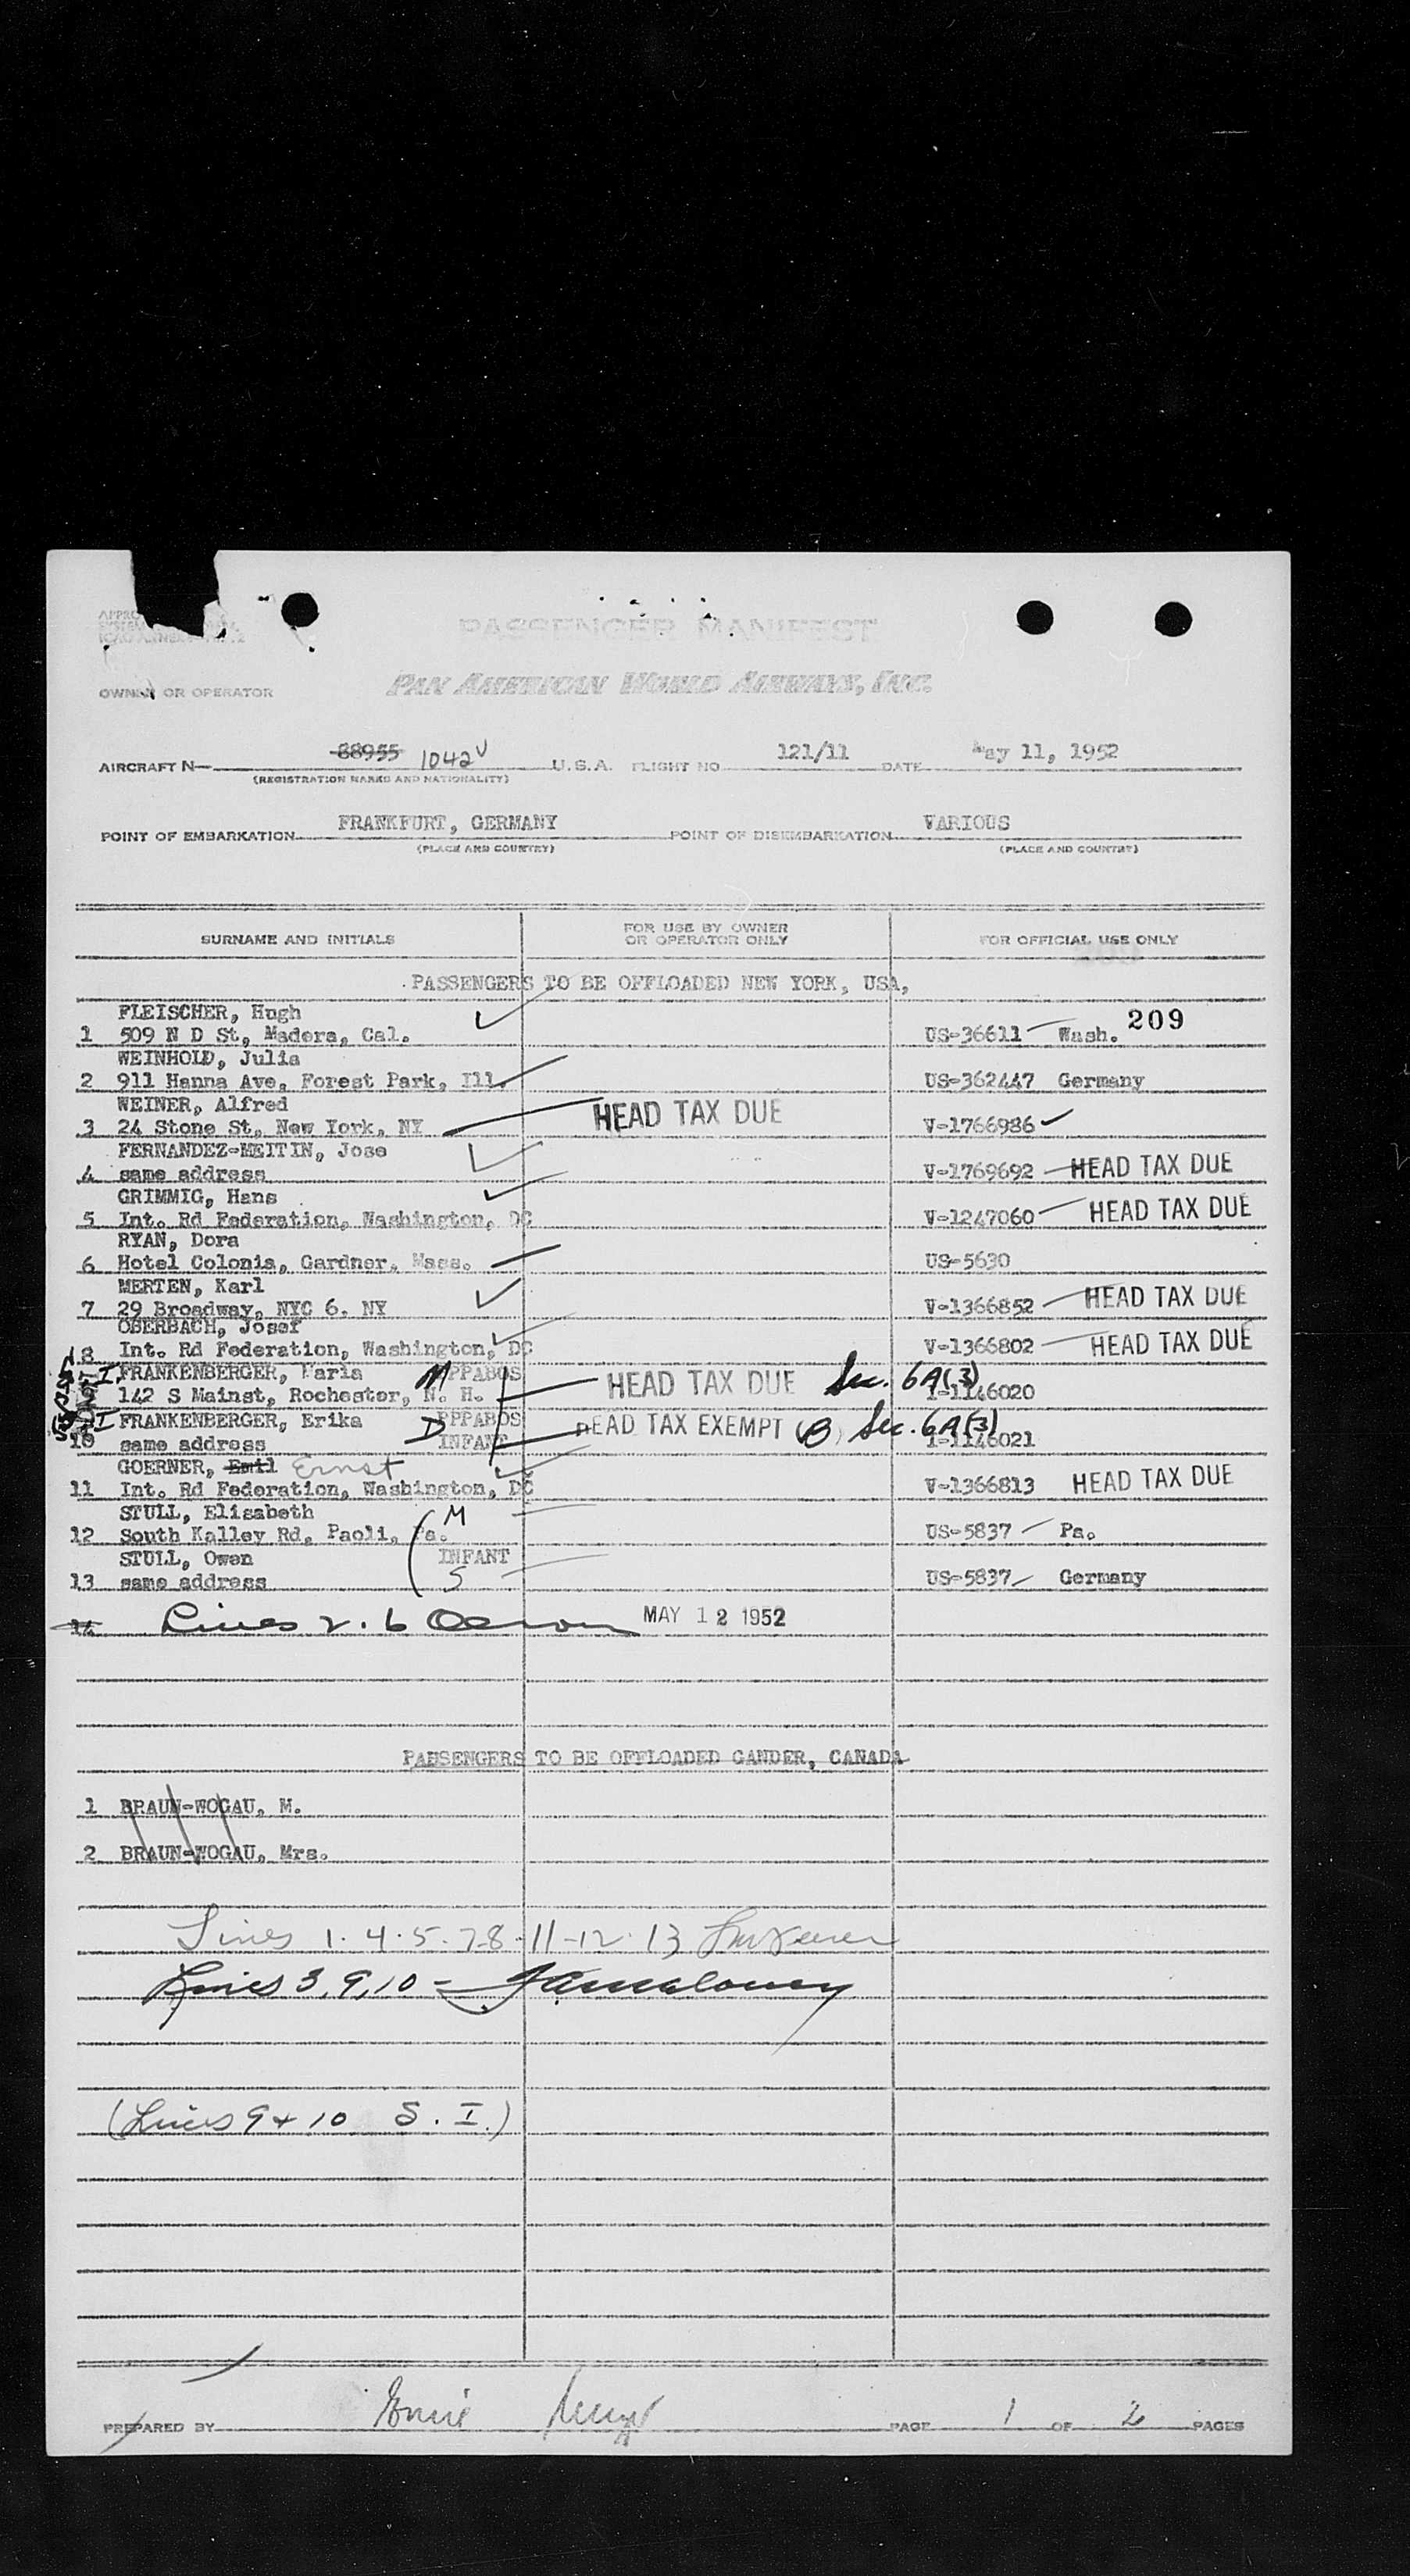 PASSENGER MANIFEST
OWNER OR OPERATOR PAN AMERICAN WORLD AIRWAYS, INC.
AIRCRAFT N— 88955 1042V U.S.A. FLIGHT NO 121/11 DATE May 11, 1952
(REGISTRATION MARKS AND NATIONALITY)
POINT OF EMBARKATION FRANKFURT, GERMANY POINT OF DISEMBARKATION VARIOUS
(PLACE AND COUNTRY) (PLACE AND COUNTRY)
SURNAME AND INITIALS FOR USE BY OWNER OR OPERATOR ONLY FOR OFFICIAL USE ONLY
PASSENGERS TO BE OFFLOADED NEW YORK, USA,
FLEISCHER, Hugh 209
1 509 N D St, Madera, Cal. US-36611 Wash.
WEINHOLD, Julia
2 911 Hanna Ave, Forest Park, Ill. US-362447 Germany
WEINER, Alfred HEAD TAX DUE
3 24 Stone St, New York, NY V-1766986
FERNANDEZ-MEITIN, Jose
4 same address V-1769692 HEAD TAX DUE
GRIMMIG, Hans
5 Int. Rd Federation, Washington, DC V-1247060 HEAD TAX DUE
RYAN, Dora
6 Hotel Colonia, Gardner, Mass. US-5630
MERTEN, Karl
7 29 Broadway, NYC 6, NY V-1366852 HEAD TAX DUE
OBERBACH, Josef
8 Int. Rd Federation, Washington, DC V-1366802 HEAD TAX DUE
I FRANKENBERGER, Maria M PPPABOS HEAD TAX DUE Sec. 6A(3)
142 S Mainst, Rochester, N. H. I-1146020
I FRANKENBERGER, Erika D PPPABOS HEAD TAX EXEMPT (B) Sec. 6A(3)
10 same address INFANT I-1146021
GOERNER, Emil Ernst
11 Int. Rd Federation, Washington, DC V-1366813 HEAD TAX DUE
STULL, Elisabeth M
12 South Kalley Rd, Paoli, Pa. US-5837 Pa.
STULL, Owen INFANT
13 same address S US-5837 Germany
14 Lines 2.6 MAY 12 1952
PASSENGERS TO BE OFFLOADED GANDER, CANADA
1 BRAUN-WOGAU, M.
2 BRAUN-WOGAU, Mrs.
Lines 1.4.5.7.8-11-12.13
Lines 3,9,10 - JAMaloney
(Lines 9+10 S.I.)
PREPARED BY PAGE 1 OF 2 PAGES